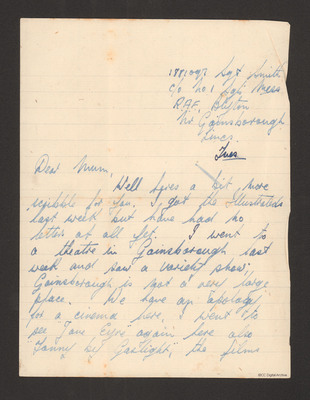 Sgt Smith
c/o No 1 Sgts Mess
RAF, Blyton
Nr Gainsborough
Lincs.
Tues
Dear Mum,
Well heres a bit more
scribble for you. I got the Illustrateds
last week but have had no
letters at all yet. I went to
a theatre in Gainsborough last
week and saw a variety show,
Gainsborough is not a very large
place. We have an apology
for a cinema here, I went to
see "Jane Eyre" again here also
"Fanny by Gaslight", the films
IBCC Digital Archive